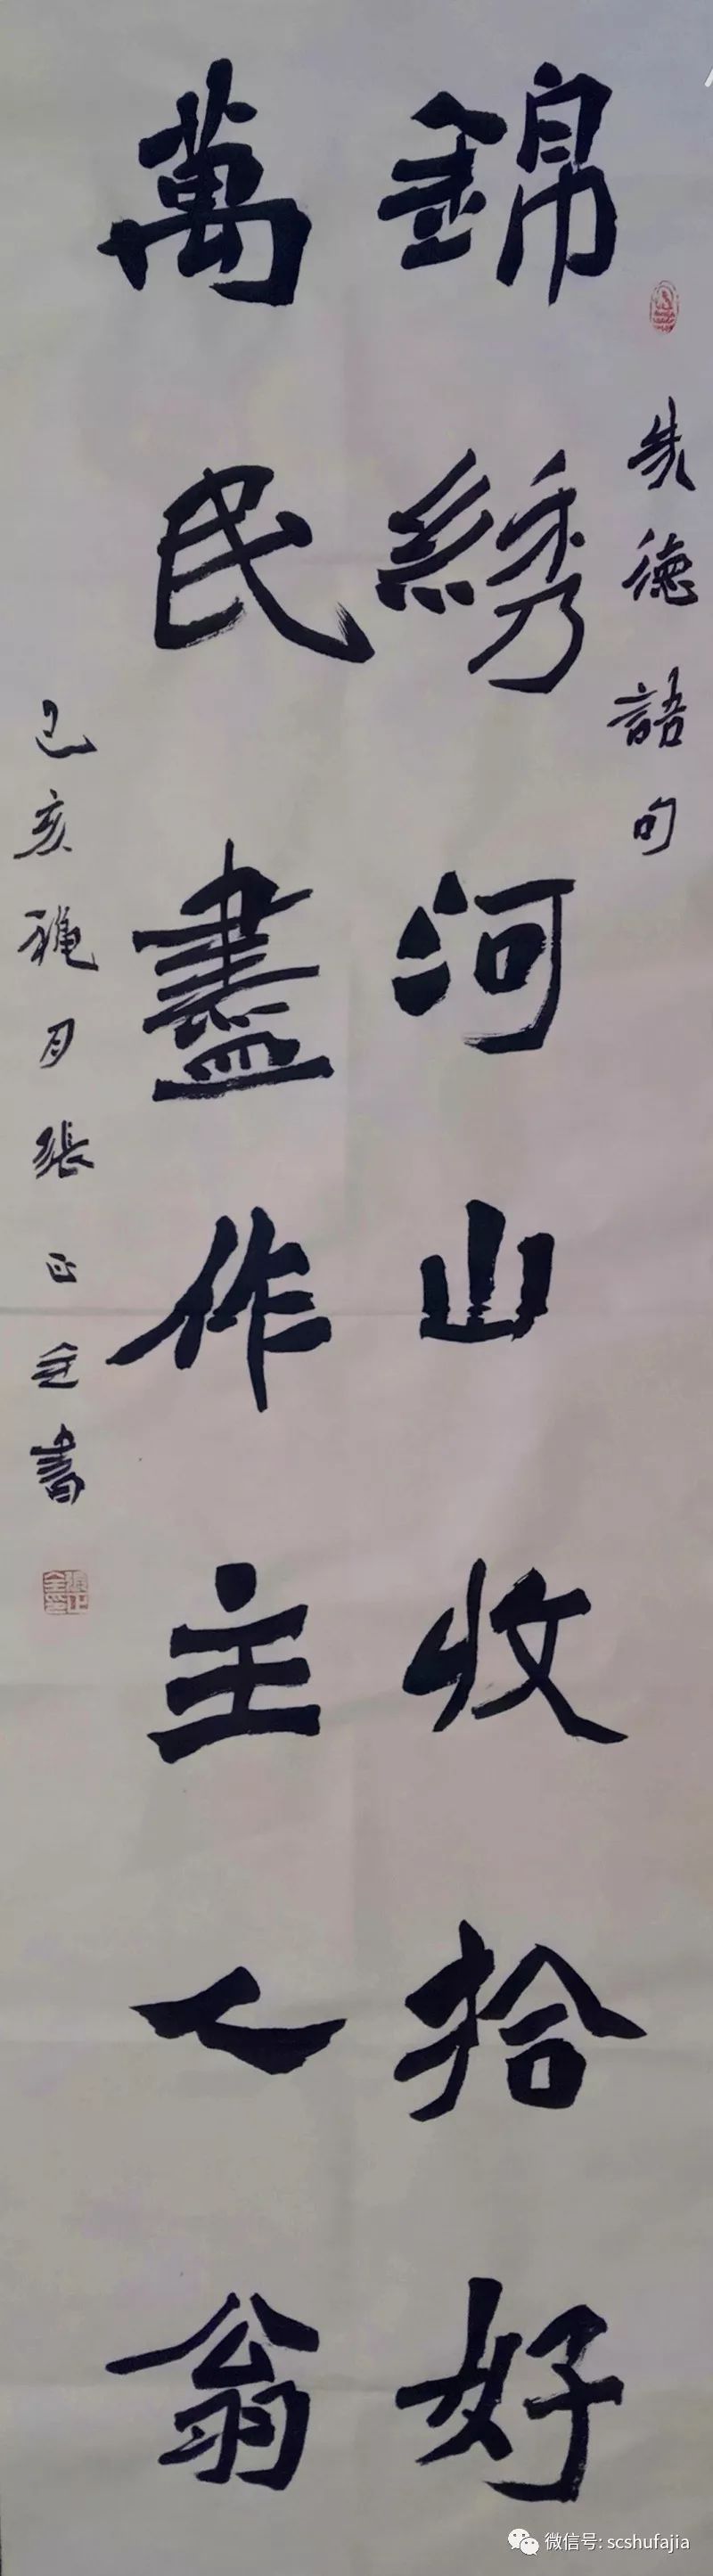 朱德語句
錦綉河山收拾好
萬民盡作主人翁
己亥穐月張正全書
張正全印
微信号: scshufajia